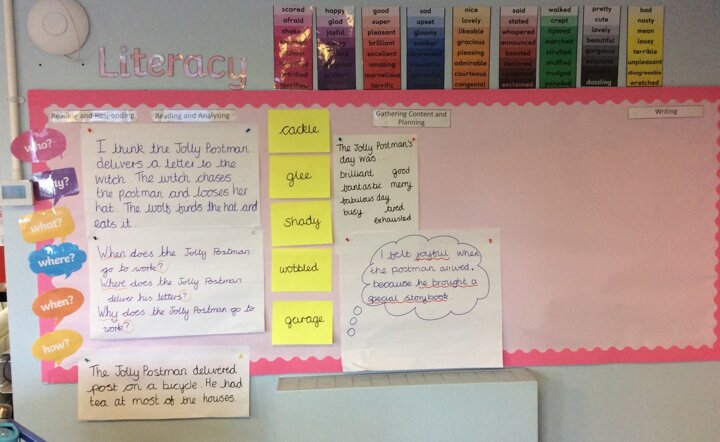 scared
afraid
happy
glad
joyful
good
super
pleasant
brilliant
excellent
amazing
marvellous
terrific
sad
upset
gloomy
nice
lovely
likeable
gracious
pleasing
admirable
courteous
congenial
said
stated
whispered
announced
boasted
declared
exclaimed
walked
crept
tiptoed
marched
strutted
shuffled
trudged
paraded
pretty
cute
lovely
beautiful
gorgeous
exquisite
dazzling
bad
nasty
mean
lousy
terrible
unpleasant
disagreeable
wretched
Literacy
Reading and Responding
Reading and Analysing
Gathering Content and
Planning
Writing
who?
why?
what?
where?
when?
how?
I think the Jolly Postman
delivers a letter to the
witch. The witch chases
the postman and looses her
hat. The wolf finds the hat and
eats it
When does the Jolly Postman
go to work?
Where does the Jolly Postman
deliver his letters?
Why does the Jolly Postman go to
work?
The Jolly Postman delivered
post on a bicycle. He had
tea at most of the houses.
cackle
glee
shady
wobbled
garage
The Jolly Postman's
day was...
brilliant good
fantastic merry
fabulous day
busy tired
exhausted
I felt joyful when
the postman arrived.
because he brought a
special storybook